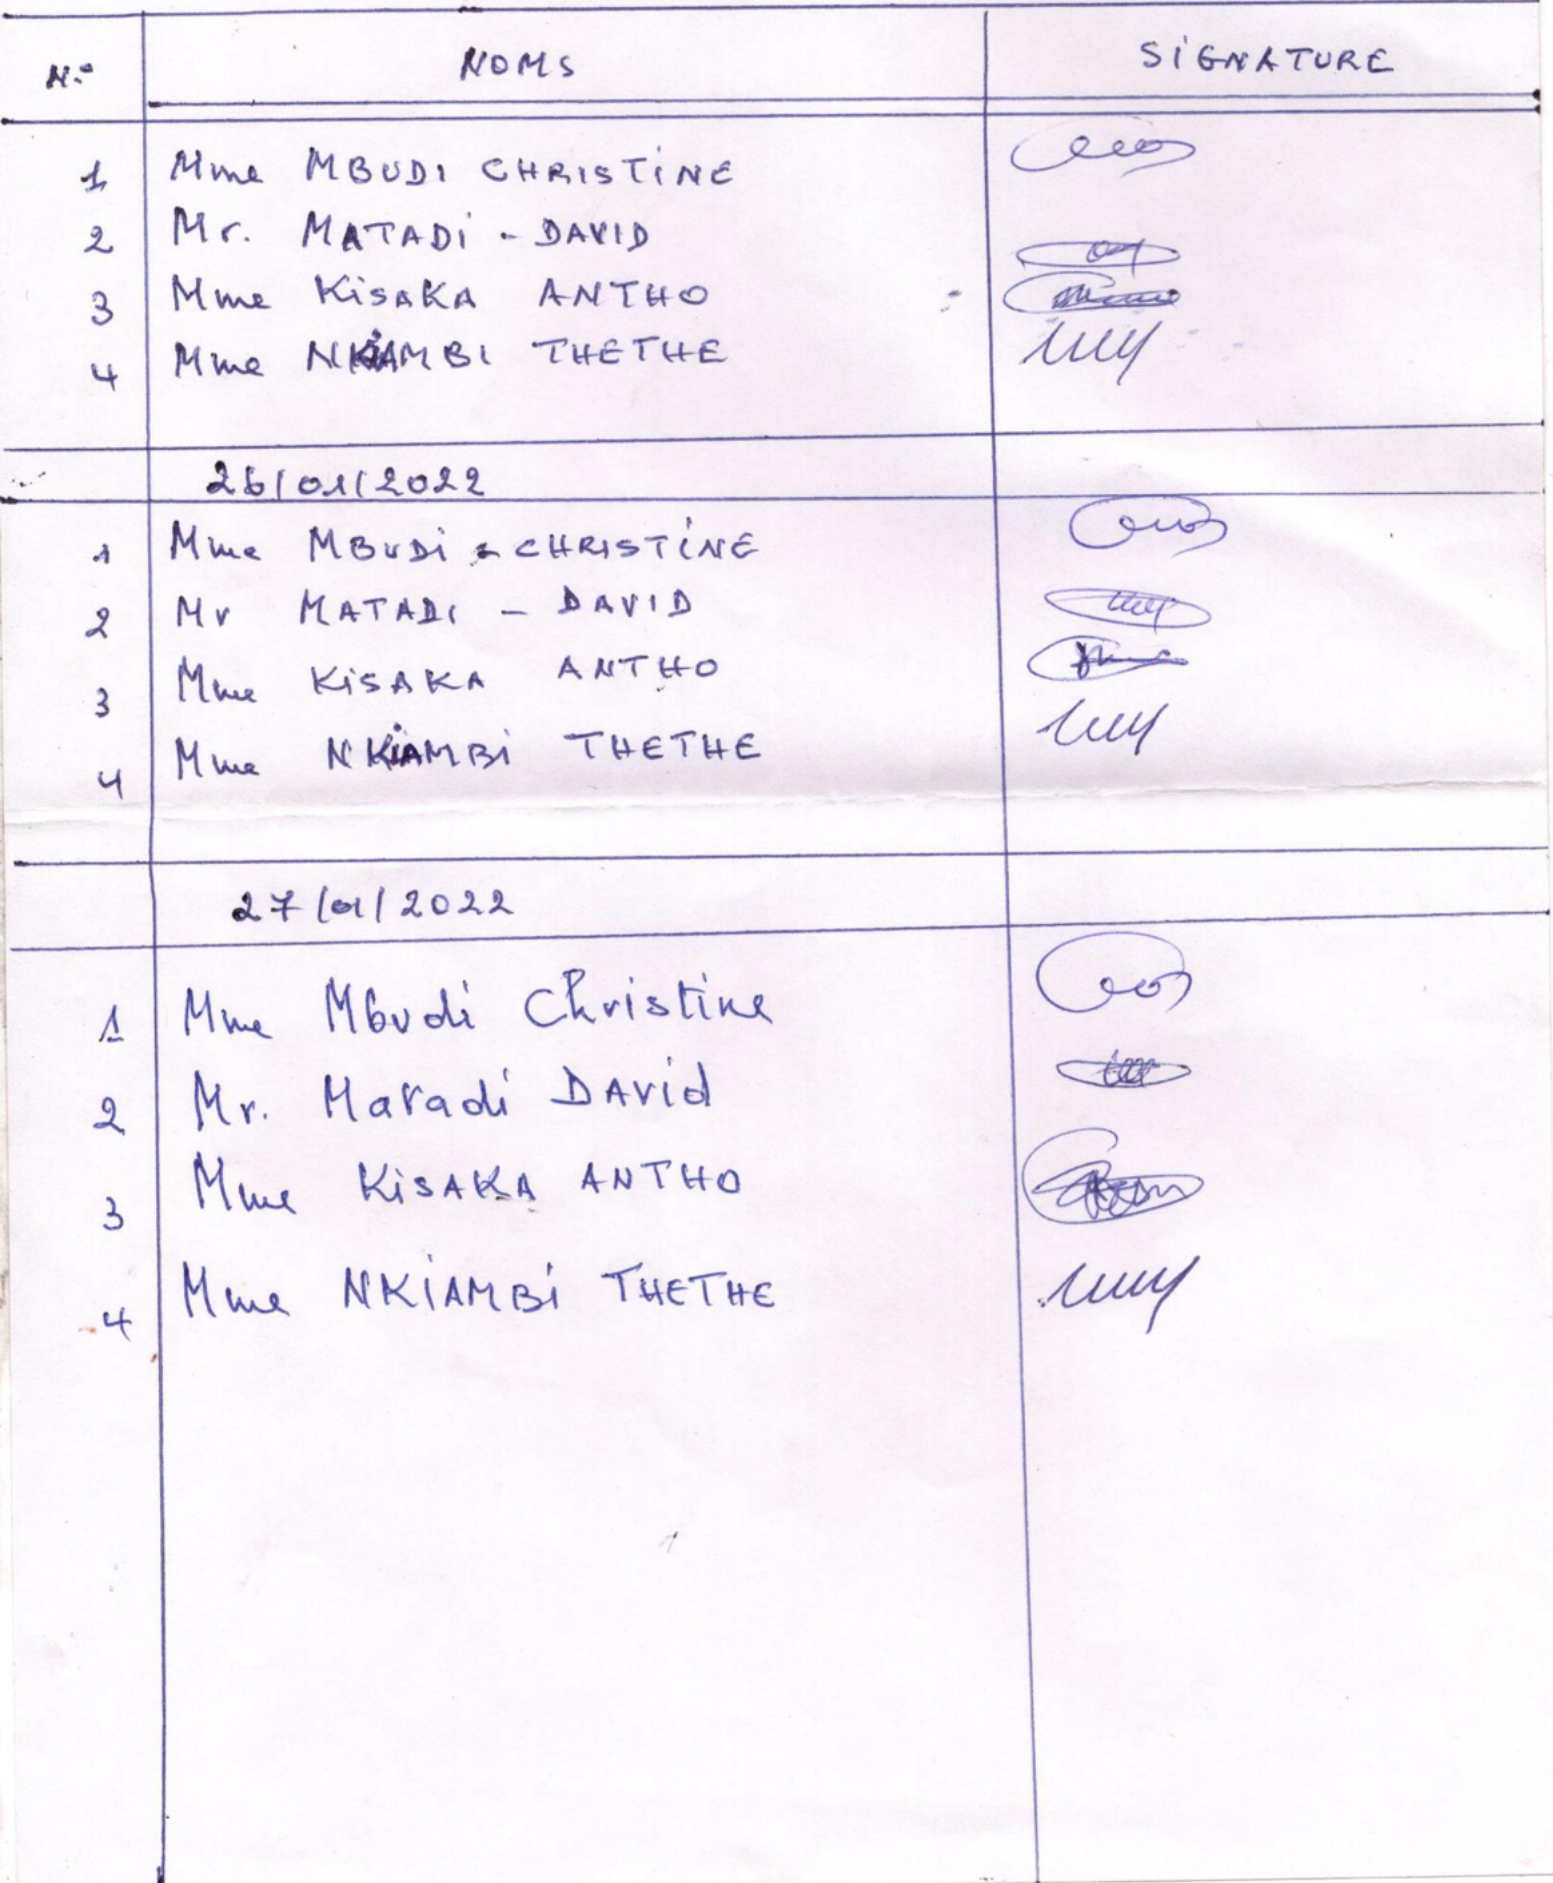 N.° NOMS SIGNATURE
1 Mme MBUDI CHRISTINE
2 Mr. MATADI - DAVID
3 Mme KISAKA ANTHO
4 Mme NKIAMBI THETHE
26/01/2022
1 Mme MBUDI - CHRISTINE
2 Mr MATADI - DAVID
3 Mme KISAKA ANTHO
4 Mme NKIAMBI THETHE
27/01/2022
1 Mme Mbudi Christine
2 Mr. Matadi DAvid
3 Mme KISAKA ANTHO
4 Mme NKIAMBI THETHE